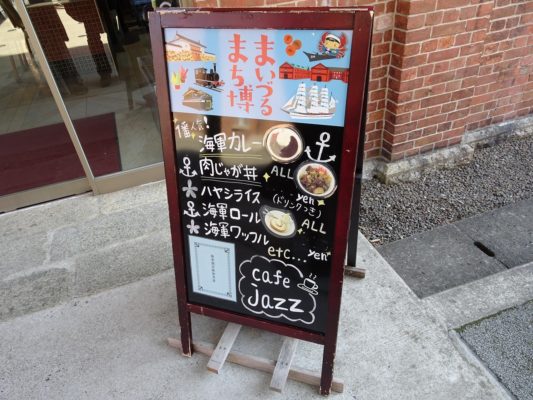 まいづる
まち博
一番人気!
海軍カレー
肉じゃが丼
ALL
ハヤシライス
yen
(ドリンクつき)
海軍ロール
海軍ワッフル
ALL
etc... yen
cafe
jazz